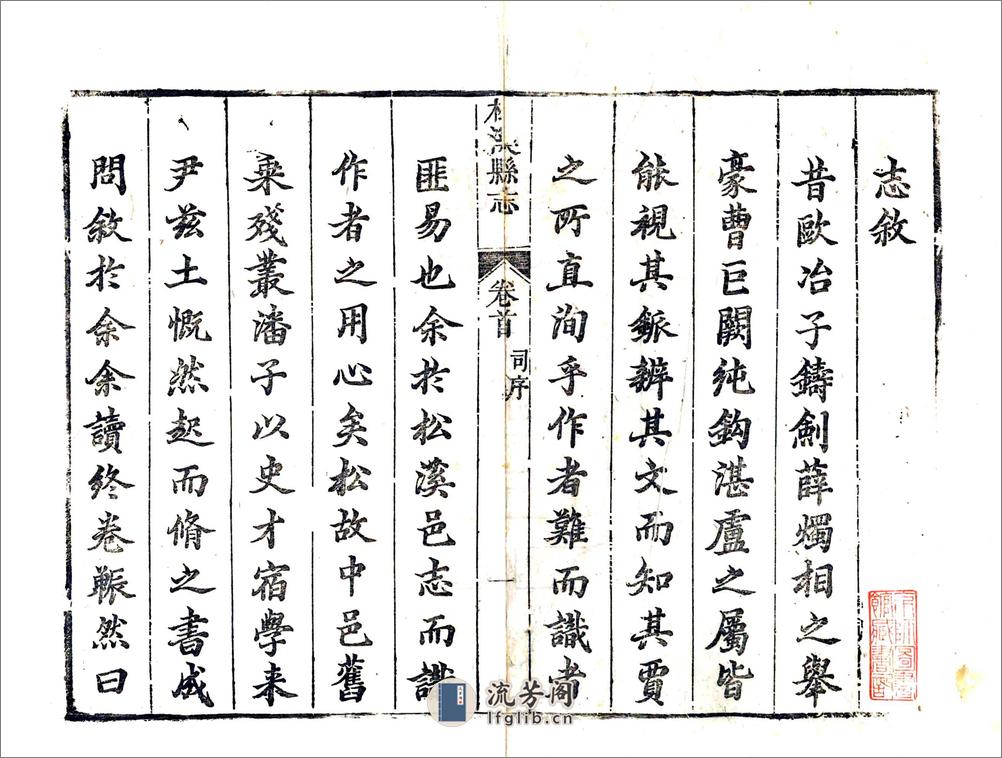 志敘
昔歐冶子鑄劍薛燭相之舉
豪曹巨闕純鈎湛盧之屬皆
能視其鈲辨其文而知其賈
之所直洵乎作者難而識者
松溪縣志 卷首 司序 一
匪易也余於松溪邑志而識
作者之用心矣松故中邑舊
乘殘叢潘子以史才宿學来
尹茲土慨然起而脩之書成
問敘於余余讀終卷冁然曰
流芳阁
lfglib.cn